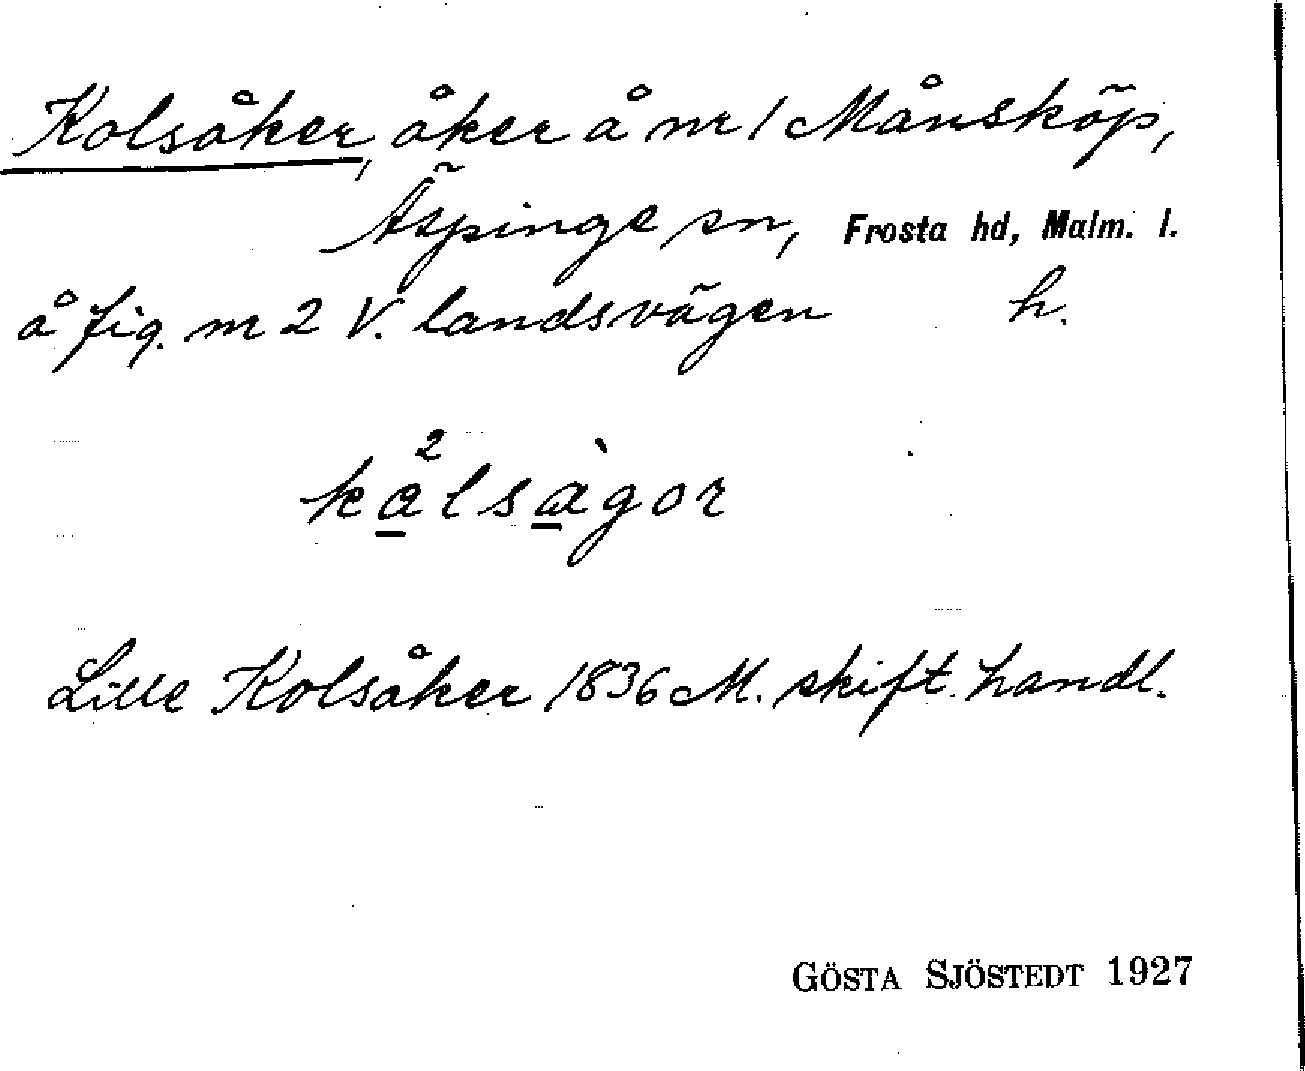 Kolsåker, åker å nr 1 Månsköp,
Äspinge sn, Frosta hd, Malm. l.
å fig. nr 2 V. landsvägen h.
kålsàgor
Lille Kolsåker 1836 M. skift. handl.
GÖSTA SJÖSTEDT 1927